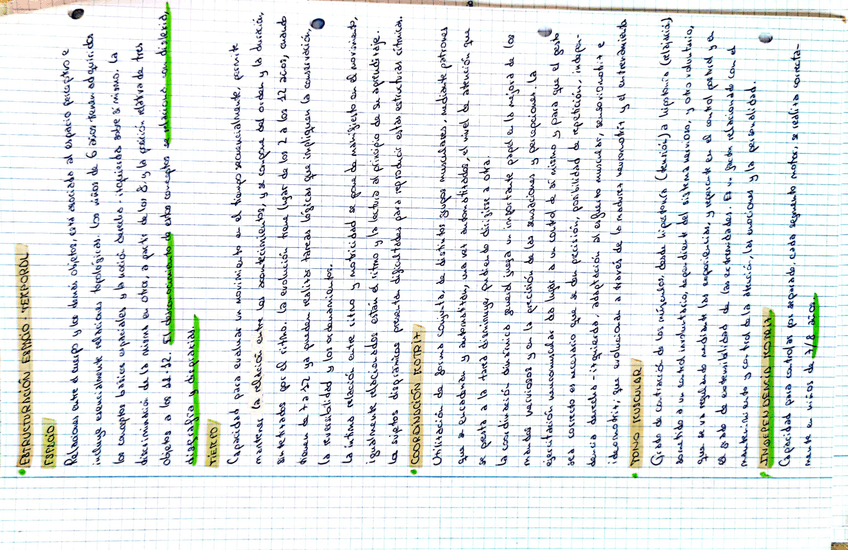 ESTRUCTURACIÓN ESPACIO-TEMPORAL
ESPACIO
Relaciones entre el cuerpo y los demás objetos, está asociado al espacio perceptivo e
incluye esencialmente relaciones topológicas. Los niños de 6 años tienen adquiridos
los conceptos básicos espaciales y la noción derecha-izquierda sobre sí mismo. La
discriminación de la misma en otros, a partir de los 8, y la posición relativa de tres
objetos a los 11-12. El desconocimiento de estos conceptos se relaciona con dislexia,
disgrafía y disgrafías.
TIEMPO
Capacidad para evaluar un movimiento en el tiempo secuencialmente, permite
mantener la relación entre los acontecimientos y se compone del orden y la duración,
sintetizados por el ritmo. La evolución tiene lugar de los 2 a los 12 años, cuando
tienen de 7 a 12 ya pueden realizar tareas lógicas que impliquen la conservación,
la reversibilidad y los ordenamientos.
La íntima relación entre ritmo y motricidad se pone de manifiesto en el movimiento,
igualmente relacionados están el ritmo y la lectura al principio de su aprendizaje.
Los sujetos disgráficos presenta dificultades para reproducir estas estructuras rítmicas.
COORDINACIÓN MOTRIZ
Utilización de forma conjunta, de distintos grupos musculares, mediante patrones
que se encadenan y automatizan, una vez automatizados, el nivel de atención que
se presta a la tarea disminuye pudiendo dirigirse a otra.
La coordinación dinámica general juega un importante papel en la mejora de los
mandos nerviosos y en la precisión de las sensaciones y percepciones. La
ejercitación neuromuscular da lugar a un control de sí mismo y para que el gesto
sea correcto es necesario que se den precisión, posibilidad de repetición, indepen-
dencia derecha-izquierda, adaptación al esfuerzo muscular, sensoriomotriz e
ideomotriz, que evolucionan a través de la madurez neuromotriz y el entrenamiento
TONO MUSCULAR
Grado de contracción de los músculos, desde hipertonía (tensión) a hipotonía (relajación)
sometido a un control involuntario, dependiente del sistema nervioso, y otro voluntario,
que se va regulando mediante las experiencias, y repercute en el control postural y en
el grado de extensibilidad de las extremidades. Es un factor relacionado con el
mantenimiento y control de la atención, las emociones y la personalidad.
INDEPENDENCIA MOTRIZ
Capacidad para controlar por separado, cada segmento motor, se realiza correcta-
mente en niños de 7/8 años.